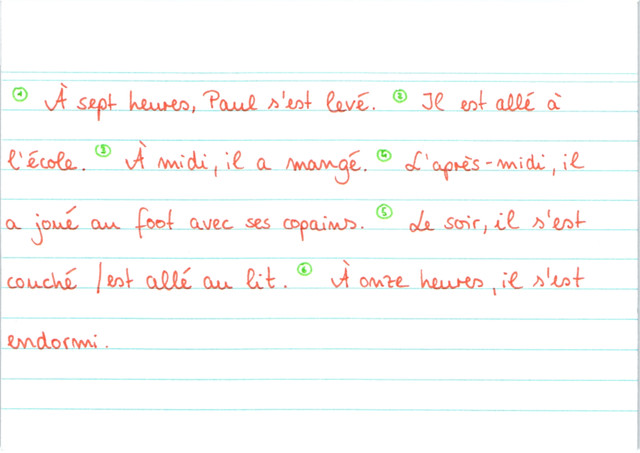 ① À sept heures, Paul s'est levé. ② Il est allé à
l'école. ③ À midi, il a mangé. ④ L'après-midi, il
a joué au foot avec ses copains. ⑤ Le soir, il s'est
couché / est allé au lit. ⑥ À onze heures, il s'est
endormi.